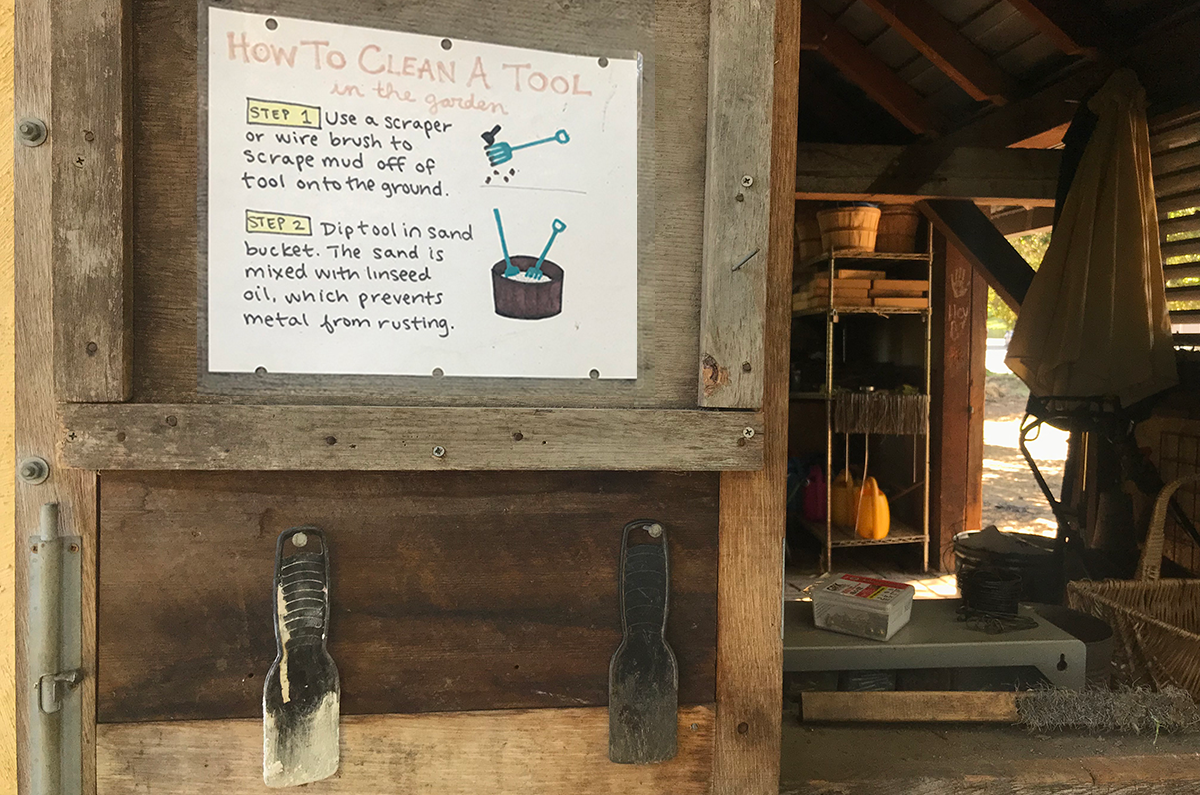 How To Clean A Tool
in the garden
STEP 1 Use a scraper
or wire brush to
scrape mud off of
tool onto the ground.
STEP 2 Dip tool in sand
bucket. The sand is
mixed with linseed
oil, which prevents
metal from rusting.